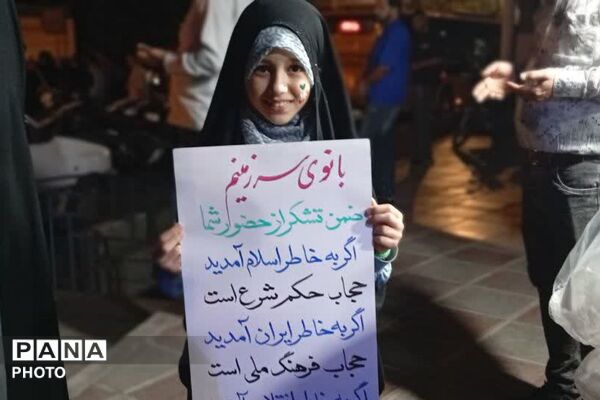 بانوی سرزمینم
ضمن تشکر از حضور شما
اگر به خاطر اسلام آمدید
حجاب حکم شرع است
اگر به خاطر ایران آمدید
حجاب فرهنگ ملی است
اگر به خاطر انقلاب آمدید
PANA
PHOTO